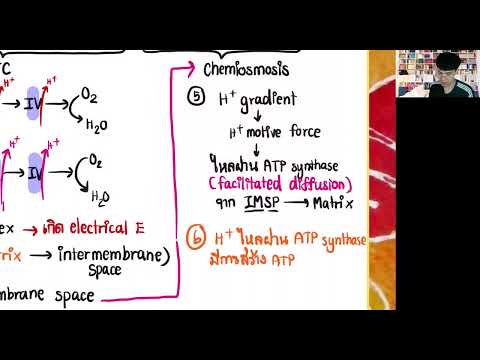 C
H⁺ H⁺
IV → O₂
H₂O
H⁺ H⁺
IV → O₂
H₂O
ex → เกิด electrical E
trix → intermembrane)
space
mbrane space
Chemiosmosis
⑤ H⁺ gradient
↓
H⁺ motive force
↓
ไหลผ่าน ATP synthase
(facilitated diffusion)
จาก IMSP → Matrix
⑥ H⁺ ไหลผ่าน ATP synthase
มีการสร้าง ATP